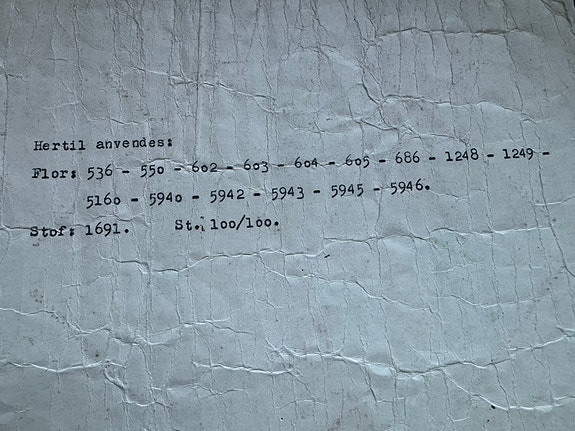 Hertil anvendes:
Flor: 536 - 550 - 602 - 603 - 604 - 605 - 686 - 1248 - 1249 -
5160 - 5940 - 5942 - 5943 - 5945 - 5946.
Stof: 1691. St.: 100/100.